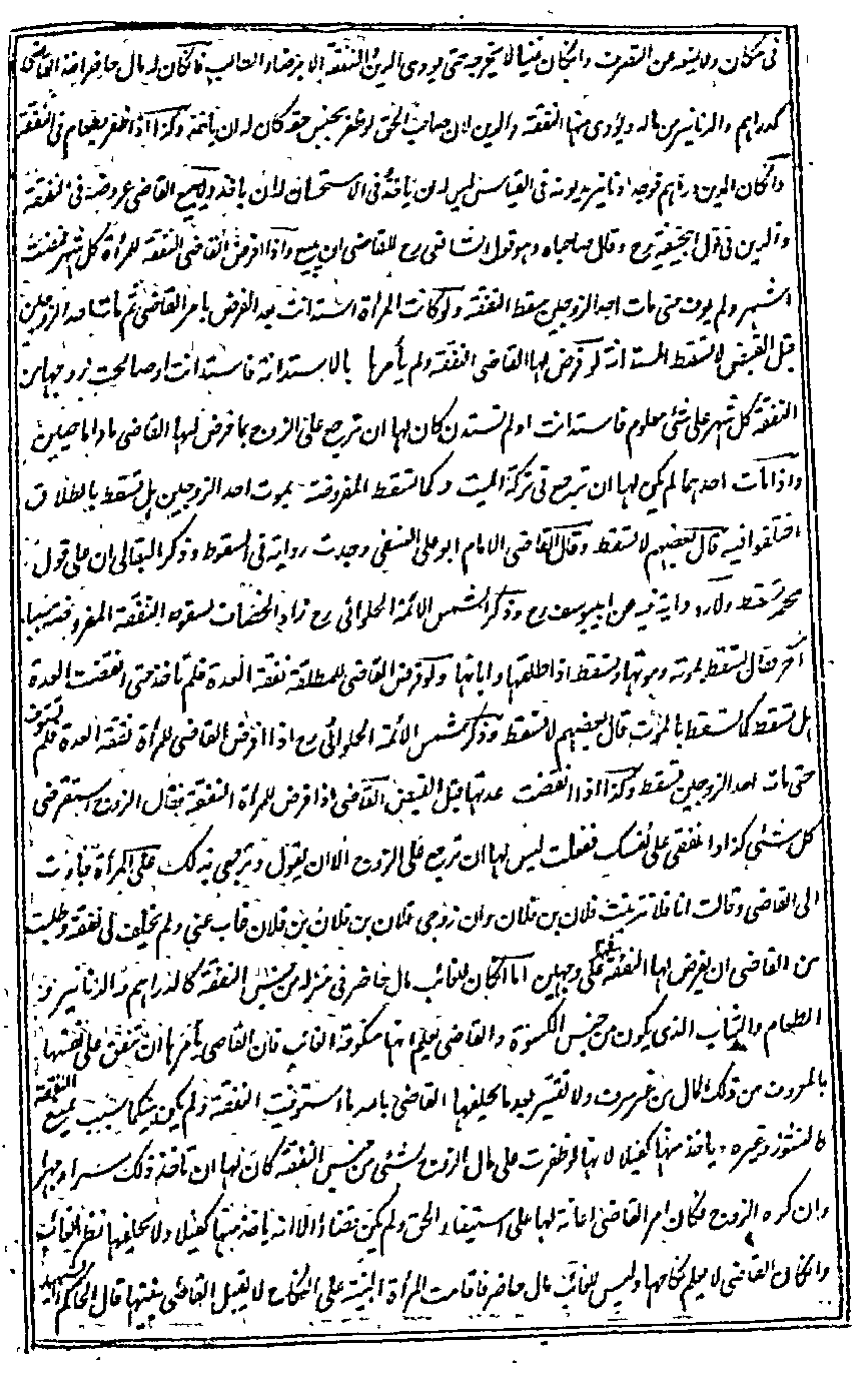 في مكان ولا يمنعه من التصرف وان كان غنيا لا يخرجه حتى يؤدى الدين والنفقة الا برضاء الطالب فان كان له مال حاضر اخذ القاضي
الدراهم والدنانير من ماله ويؤدى منها النفقة والدين لان صاحب الحق لو ظفر بجنس حقه كان له ان ياخذه وكذا اذا ظفر بطعام في النفقة
وان كان الدين دراهم فوجد دنانير مديونه في القياس ليس له ان ياخذه وفي الاستحسان له ان ياخذ ولا يبيع القاضي عروضه في النفقة
والدين في قول ابيحنيفة رح وقال صاحباه وهو قول الشافعي رح للقاضي ان يبيع واذا فرض القاضي النفقة للمرأة كل شهر فمضت
اشهر ولم يوف حتى مات احد الزوجين سقط النفقة ولو كانت المرأة استدانت بعد الفرض بامر القاضي ثم مات احد الزوجين
قبل القبض لا تسقط المستدانة لو فرض لها القاضي النفقة ولم يأمرها بالاستدانة فاستدانت او صالحت زوجها من
النفقة كل شهر على شئ معلوم فاستدانت او لم تستدن كان لها ان ترجع على الزوج بما فرض لها القاضي ماداما حيين
واذا مات احدهما لم يكن لها ان ترجع في تركة الميت وكما تسقط المفروضة بموت احد الزوجين هل تسقط بالطلاق
اختلفوا فيه قال بعضهم لا تسقط وقال القاضي الامام ابو على النسفي وجدت رواية في السقوط وذكر البقالي ان على قول
محمد تسقط ولا رواية فيه عن ابييوسف رح وذكر الشمس الائمة الحلوائي رح زاد الخصاف لسقوط النفقة المفروضة سببا
آخر فقال تسقط بموته وموتها وتسقط اذا طلقها وابانها ولو فرض القاضي للمطلقة نفقة العدة فلم تاخذ حتى انقضت العدة
هل تسقط كما تسقط بالموت قال بعضهم لا تسقط وذكر شمس الائمة الحلوائي رح اذا فرض القاضي للمرأة نفقة العدة فلم تستوف
حتى مات احد الزوجين تسقط وكذا اذا انقضت عدتها قبل القبض القاضي اذا فرض للمرأة النفقة فقال الزوج استقرضي
كل شئي كذا وانفقي على نفسك ففعلت ليس لها ان ترجع على الزوج الا ان يقول وترجعي بذلك على المرأة جاءت
الى القاضي وقالت انا فلانة بنت فلان بن فلان وان زوجي فلان بن فلان بن فلان غاب عني ولم يخلف لي نفقة وطلبت
من القاضي ان يفرض لها النفقة فهو على وجهين اما ان كان للغائب مال حاضر في منزله من جنس النفقة كالدراهم والدنانير و
الطعام والثياب الذي يكون من جنس الكسوة والقاضي يعلم انها منكوحة الغائب فان القاضي يأمرها ان تنفق على نفسها
بالمعروف من ذلك المال من غير سرف ولا تقتير بعد ما يحلفها القاضي بالله ما استوفيت النفقة ولم يكن بينكما سبب يمنع النفقة
كالنشوز وغيره وياخذ منها كفيلا لانها لو ظفرت على مال الزوج بشئ من جنس النفقة كان لها ان تاخذ ذلك سرا وجهرا
وان كره الزوج فكان امر القاضي اعانة لها على استيفاء الحق ولم يكن قضاء الا انه ياخذ منها كفيلا ولا يحلفها نظرا للغائب
وان كان القاضي لا يعلم نكاحها وليس للغائب مال حاضر فاقامت المرأة البينة على النكاح لا يقبل القاضي بينتها قال الحاكم الشهيد